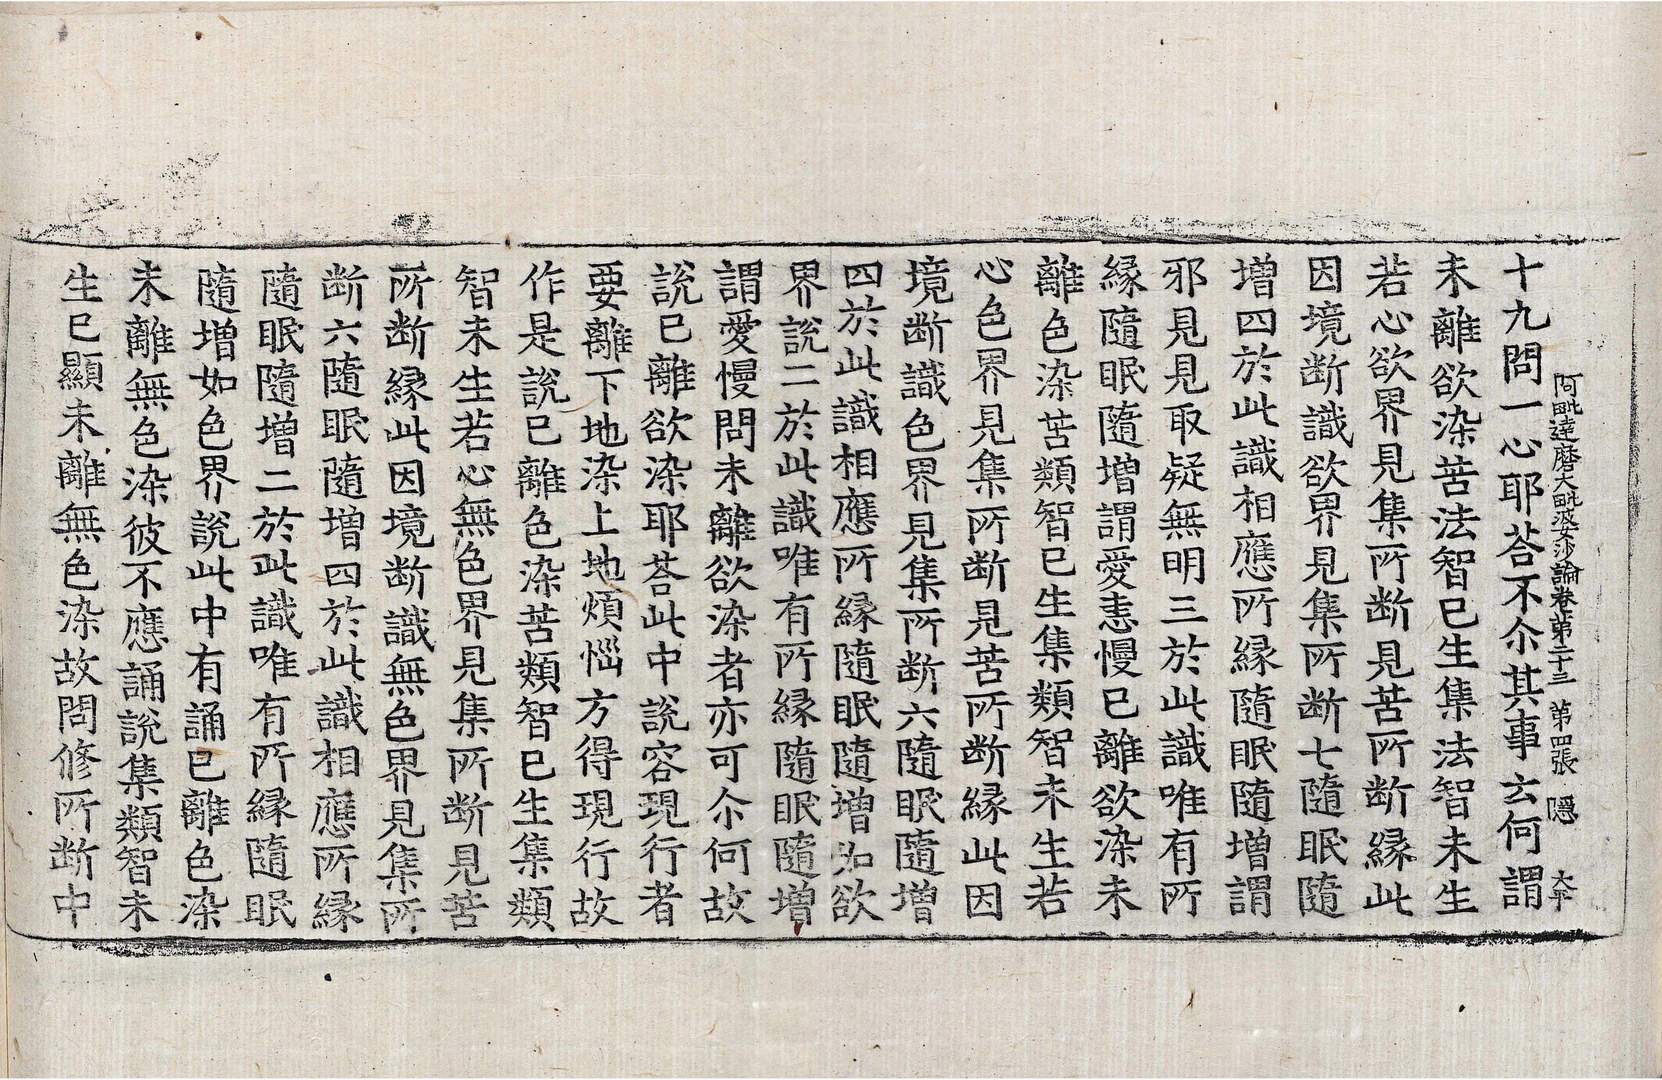 阿毗達磨大毗婆沙論卷第二十三 第四張 隱 大平
十九問一心耶荅不尒其事玄何謂
未離欲染苦法智已生集法智未生
若心欲界見集所断見苦所断縁此
因境断識欲界見集所断七隨眠隨
増四於此識相應所縁隨眠隨増謂
邪見見取疑無明三於此識唯有所
縁隨眠隨増謂愛恚慢已離欲染未
離色染苦類智已生集類智未生若
心色界見集所断見苦所断縁此因
境断識色界見集所断六隨眠隨増
四於此識相應所縁隨眠隨増如欲
界說二於此識唯有所縁隨眠隨増
謂愛慢問未離欲染者亦可尒何故
說已離欲染耶荅此中說容現行者
要離下地染上地煩惱方得現行故
作是說已離色染苦類智已生集類
智未生若心無色界見集所断見苦
所断縁此因境断識無色界見集所
断六隨眠隨増四於此識相應所縁
隨眠隨増二於此識唯有所縁隨眠
隨増如色界說此中有誦已離色染
未離無色染彼不應誦說集類智未
生已顯未離無色染故問修所断中